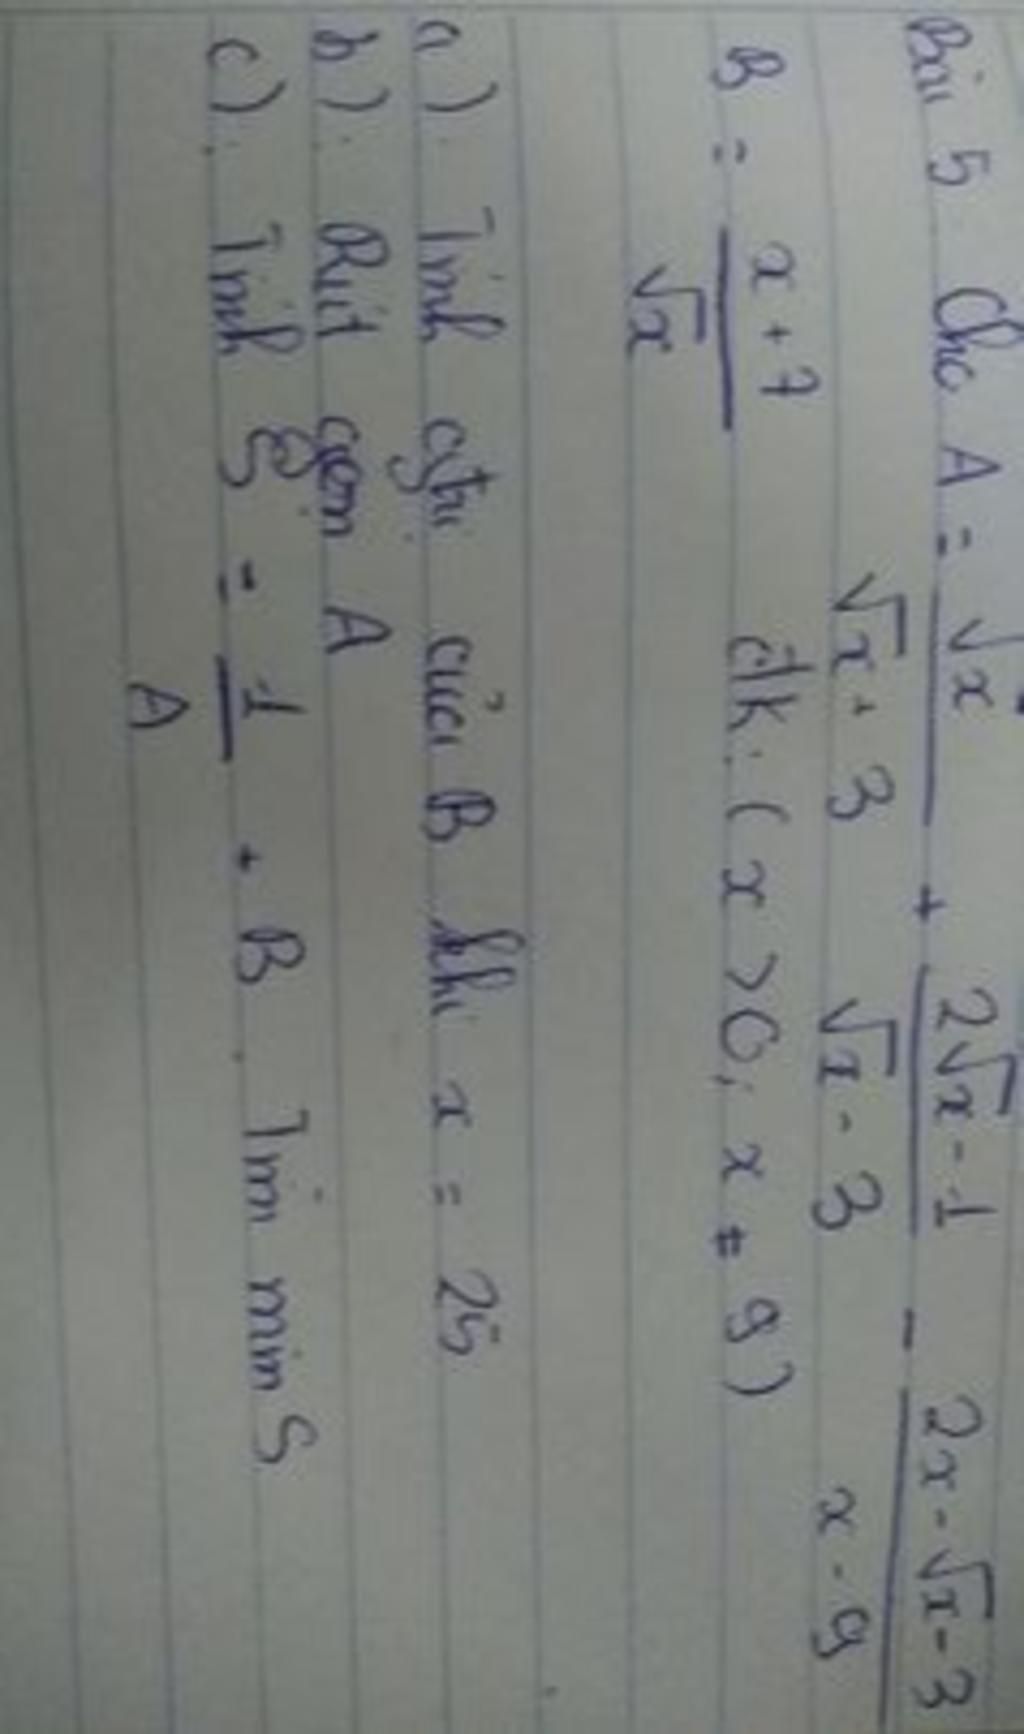 Bài 5 Cho A = √x / (√x + 3) + (2√x - 1) / (√x - 3) - (2x - √x - 3) / (x - 9)
B = (x + 7) / √x đk: (x > 0; x ≠ 9)
a). Tính gtri của B khi x = 25
b). Rút gọn A
c). Tính S = 1 / A + B. Tìm min S